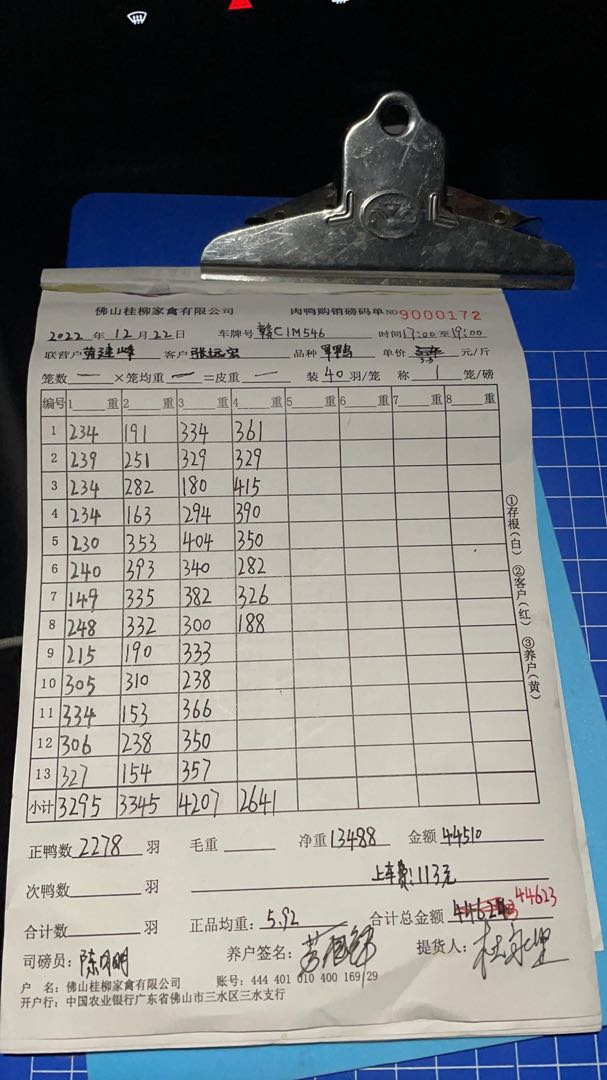 佛山桂柳家禽有限公司 肉鸭购销磅码单 NO 9000172
2022 年 12 月 22 日 车牌号 赣C1M546 时间 17:00 至 19:00
联营户 黄建峰 客户 张远宏 品种 单价 3.3 元/斤
笼数 一 ×笼均重 一 =皮重 一 装 40 羽/笼 称 1 笼/磅
编号 1 重 2 重 3 重 4 重 5 重 6 重 7 重 8 重
1 234 191 334 361
2 239 251 329 329
3 234 282 180 415
4 234 163 294 390
5 230 353 404 350
6 240 393 340 282
7 149 335 382 326
8 248 332 300 188
9 215 190 333
10 305 310 238
11 334 153 366
12 306 238 350
13 327 154 357
小计 3295 3345 4207 2641
①存根(白) ②客户(红) ③养户(黄)
正鸭数 2278 羽 毛重 净重 13488 金额 44510
次鸭数 羽 上车费:113元
合计数 羽 正品均重: 5.92 合计总金额 44623
司磅员: 养户签名: 提货人:
户 名: 佛山桂柳家禽有限公司 账号: 444 401 010 400 169 29
开户行: 中国农业银行广东省佛山市三水区三水支行